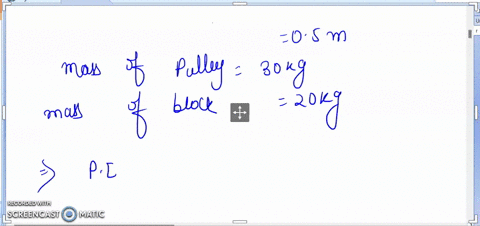 =0.5 m
mass of Pulley = 30kg
mass of block = 20kg
⇒ P.E
RECORDED WITH
SCREENCAST MATIC